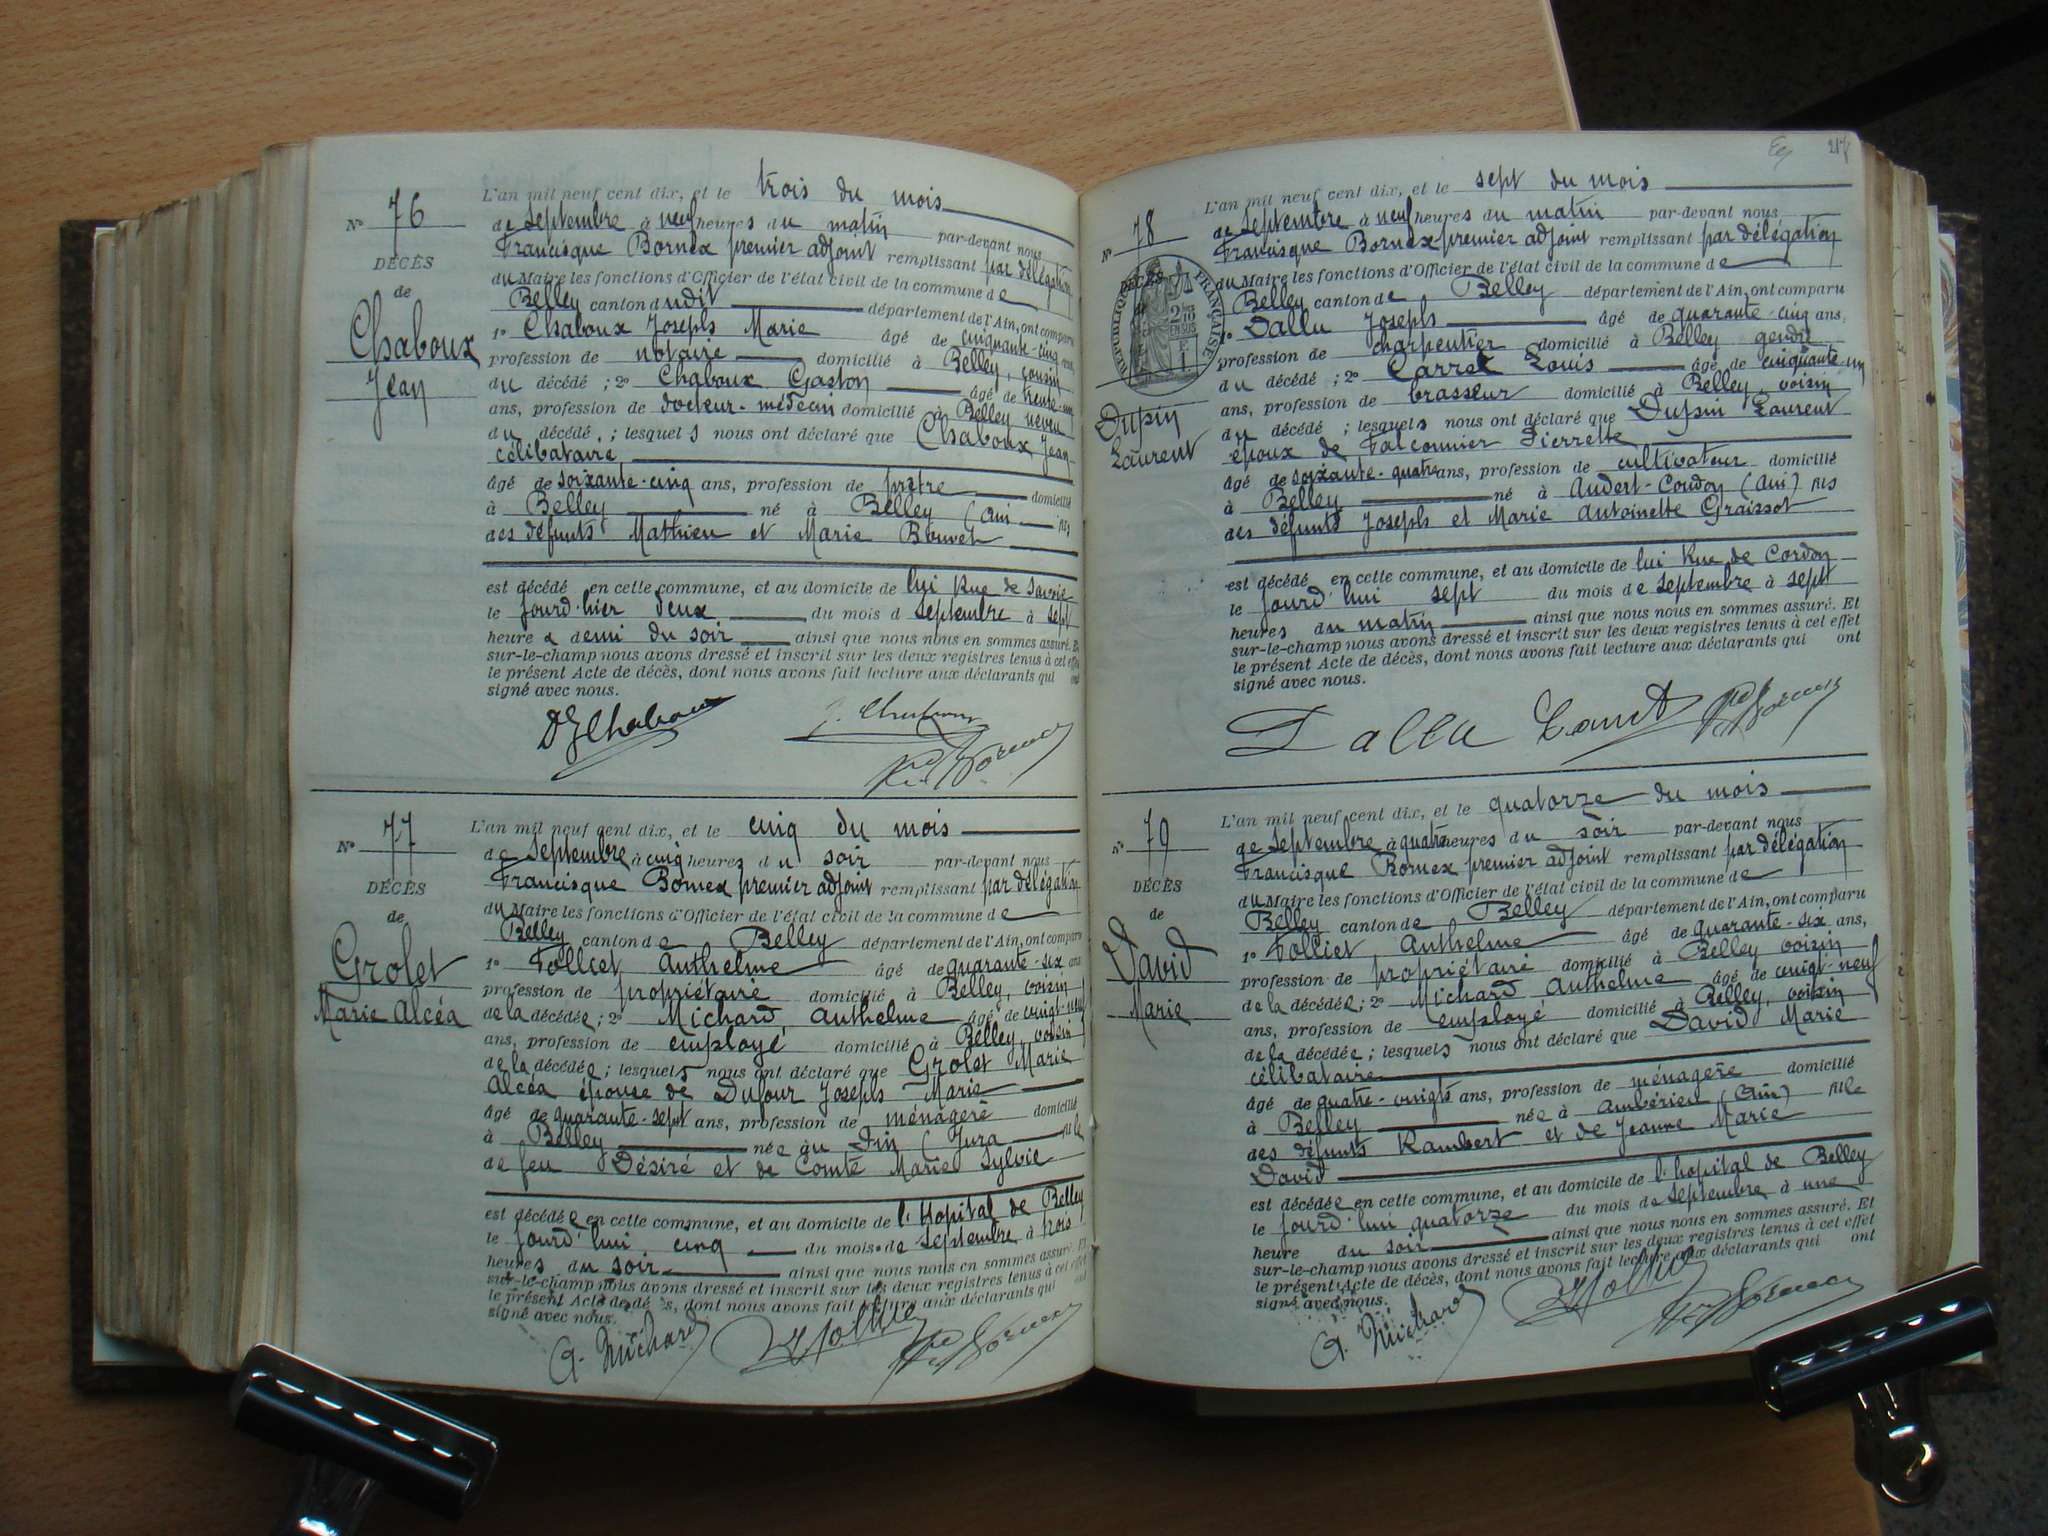 Nº 76
DÉCÈS
de
Chaboux
Jean
L'an mil neuf cent dix, et le trois du mois
de Septembre à neuf heures du matin par-devant nous
Francisque Bornex premier adjoint remplissant par délégation
du Maire les fonctions d'Officier de l'état civil de la commune de
Belley canton dudit département de l'Ain, ont comparu
1º Chaboux Joseph Marie âgé de cinquante-cinq ans,
profession de notaire domicilié à Belley, cousin
du décédé ; 2º Chaboux Gaston âgé de trente-un
ans, profession de docteur-médecin domicilié à Belley neveu
du décédé ; lesquels nous ont déclaré que Chaboux Jean
célibataire
âgé de soixante-cinq ans, profession de prêtre domicilié
à Belley né à Belley (Ain fils
des défunts Mathieu et Marie Bouvet
est décédé en cette commune, et au domicile de lui Rue de Savoie
le jourd'hier deux du mois d septembre à sept
heure e demi du soir ainsi que nous nous en sommes assuré. Et
sur-le-champ nous avons dressé et inscrit sur les deux registres tenus à cet effet
le présent Acte de décès, dont nous avons fait lecture aux déclarants qui ont
signé avec nous.
Nº 77
DÉCÈS
de
Grolet
Marie Alcéa
L'an mil neuf cent dix, et le cinq du mois
de Septembre à cinq heures du soir par-devant nous
Francisque Bornex premier adjoint remplissant par délégation
du Maire les fonctions d'Officier de l'état civil de la commune de
Belley canton de Belley département de l'Ain, ont comparu
1º Folliet Anthelme âgé de quarante-six ans
profession de propriétaire domicilié à Belley, voisin
de la décédée ; 2º Michard Anthelme âgé de vingt-neuf
ans, profession de employé domicilié à Belley, voisin
de la décédée ; lesquels nous ont déclaré que Grolet Marie
Alcéa épouse de Dufour Joseph Marie
âgé de quarante-sept ans, profession de ménagère domicilié
à Belley née au Pin (Jura fille
de feu Désiré et de Comte Marie Sylvie
est décédée en cette commune, et au domicile de l'Hopital de Belley
le jourd'hui cinq du mois de septembre à trois
heures du soir ainsi que nous nous en sommes assuré. Et
sur-le-champ nous avons dressé et inscrit sur les deux registres tenus à cet effet
le présent Acte de décès, dont nous avons fait lecture aux déclarants qui ont
signé avec nous.
A. Michard
217
Nº 78
DÉCÈS
RÉPUBLIQUE FRANÇAISE
2/10 EN SUS
Dupin
Laurent
L'an mil neuf cent dix, et le sept du mois
de Septembre à neuf heures du matin par-devant nous
Francisque Bornex premier adjoint remplissant par délégation
du Maire les fonctions d'Officier de l'état civil de la commune de
Belley canton de Belley département de l'Ain, ont comparu
1º Dallu Joseph âgé de quarante-cinq ans,
profession de charpentier domicilié à Belley gendre
du décédé ; 2º Carret Louis âgé de cinquante-un
ans, profession de brasseur domicilié à Belley, voisin
du décédé ; lesquels nous ont déclaré que Dupin Laurent
époux de Falconnier Pierrette
âgé de soixante-quatre ans, profession de cultivateur domicilié
à Belley né à Andert-Condon (Ain) fils
des défunts Joseph et Marie Antoinette Graissot
est décédé en cette commune, et au domicile de lui Rue de Cordon
le jourd'hui sept du mois de septembre à sept
heures du matin ainsi que nous nous en sommes assuré. Et
sur-le-champ nous avons dressé et inscrit sur les deux registres tenus à cet effet
le présent Acte de décès, dont nous avons fait lecture aux déclarants qui ont
signé avec nous.
Nº 79
DÉCÈS
de
David
Marie
L'an mil neuf cent dix, et le quatorze du mois
de Septembre à quatre heures du soir par-devant nous
Francisque Bornex premier adjoint remplissant par délégation
du Maire les fonctions d'Officier de l'état civil de la commune de
Belley canton de Belley département de l'Ain, ont comparu
1º Folliet Anthelme âgé de quarante-six ans,
profession de propriétaire domicilié à Belley voisin
de la décédée ; 2º Michard Anthelme âgé de vingt-neuf
ans, profession de employé domicilié à Belley, voisin
de la décédée ; lesquels nous ont déclaré que David Marie
célibataire
âgé de quatre-vingts ans, profession de ménagère domicilié
à Belley née à Ambérieu (Ain) fille
des défunts Rambert et de Jeanne Marie
David
est décédée en cette commune, et au domicile de l'hopital de Belley
le jourd'hui quatorze du mois de septembre à une
heure du soir ainsi que nous nous en sommes assuré. Et
sur-le-champ nous avons dressé et inscrit sur les deux registres tenus à cet effet
le présent Acte de décès, dont nous avons fait lecture aux déclarants qui ont
signé avec nous.
A. Michard